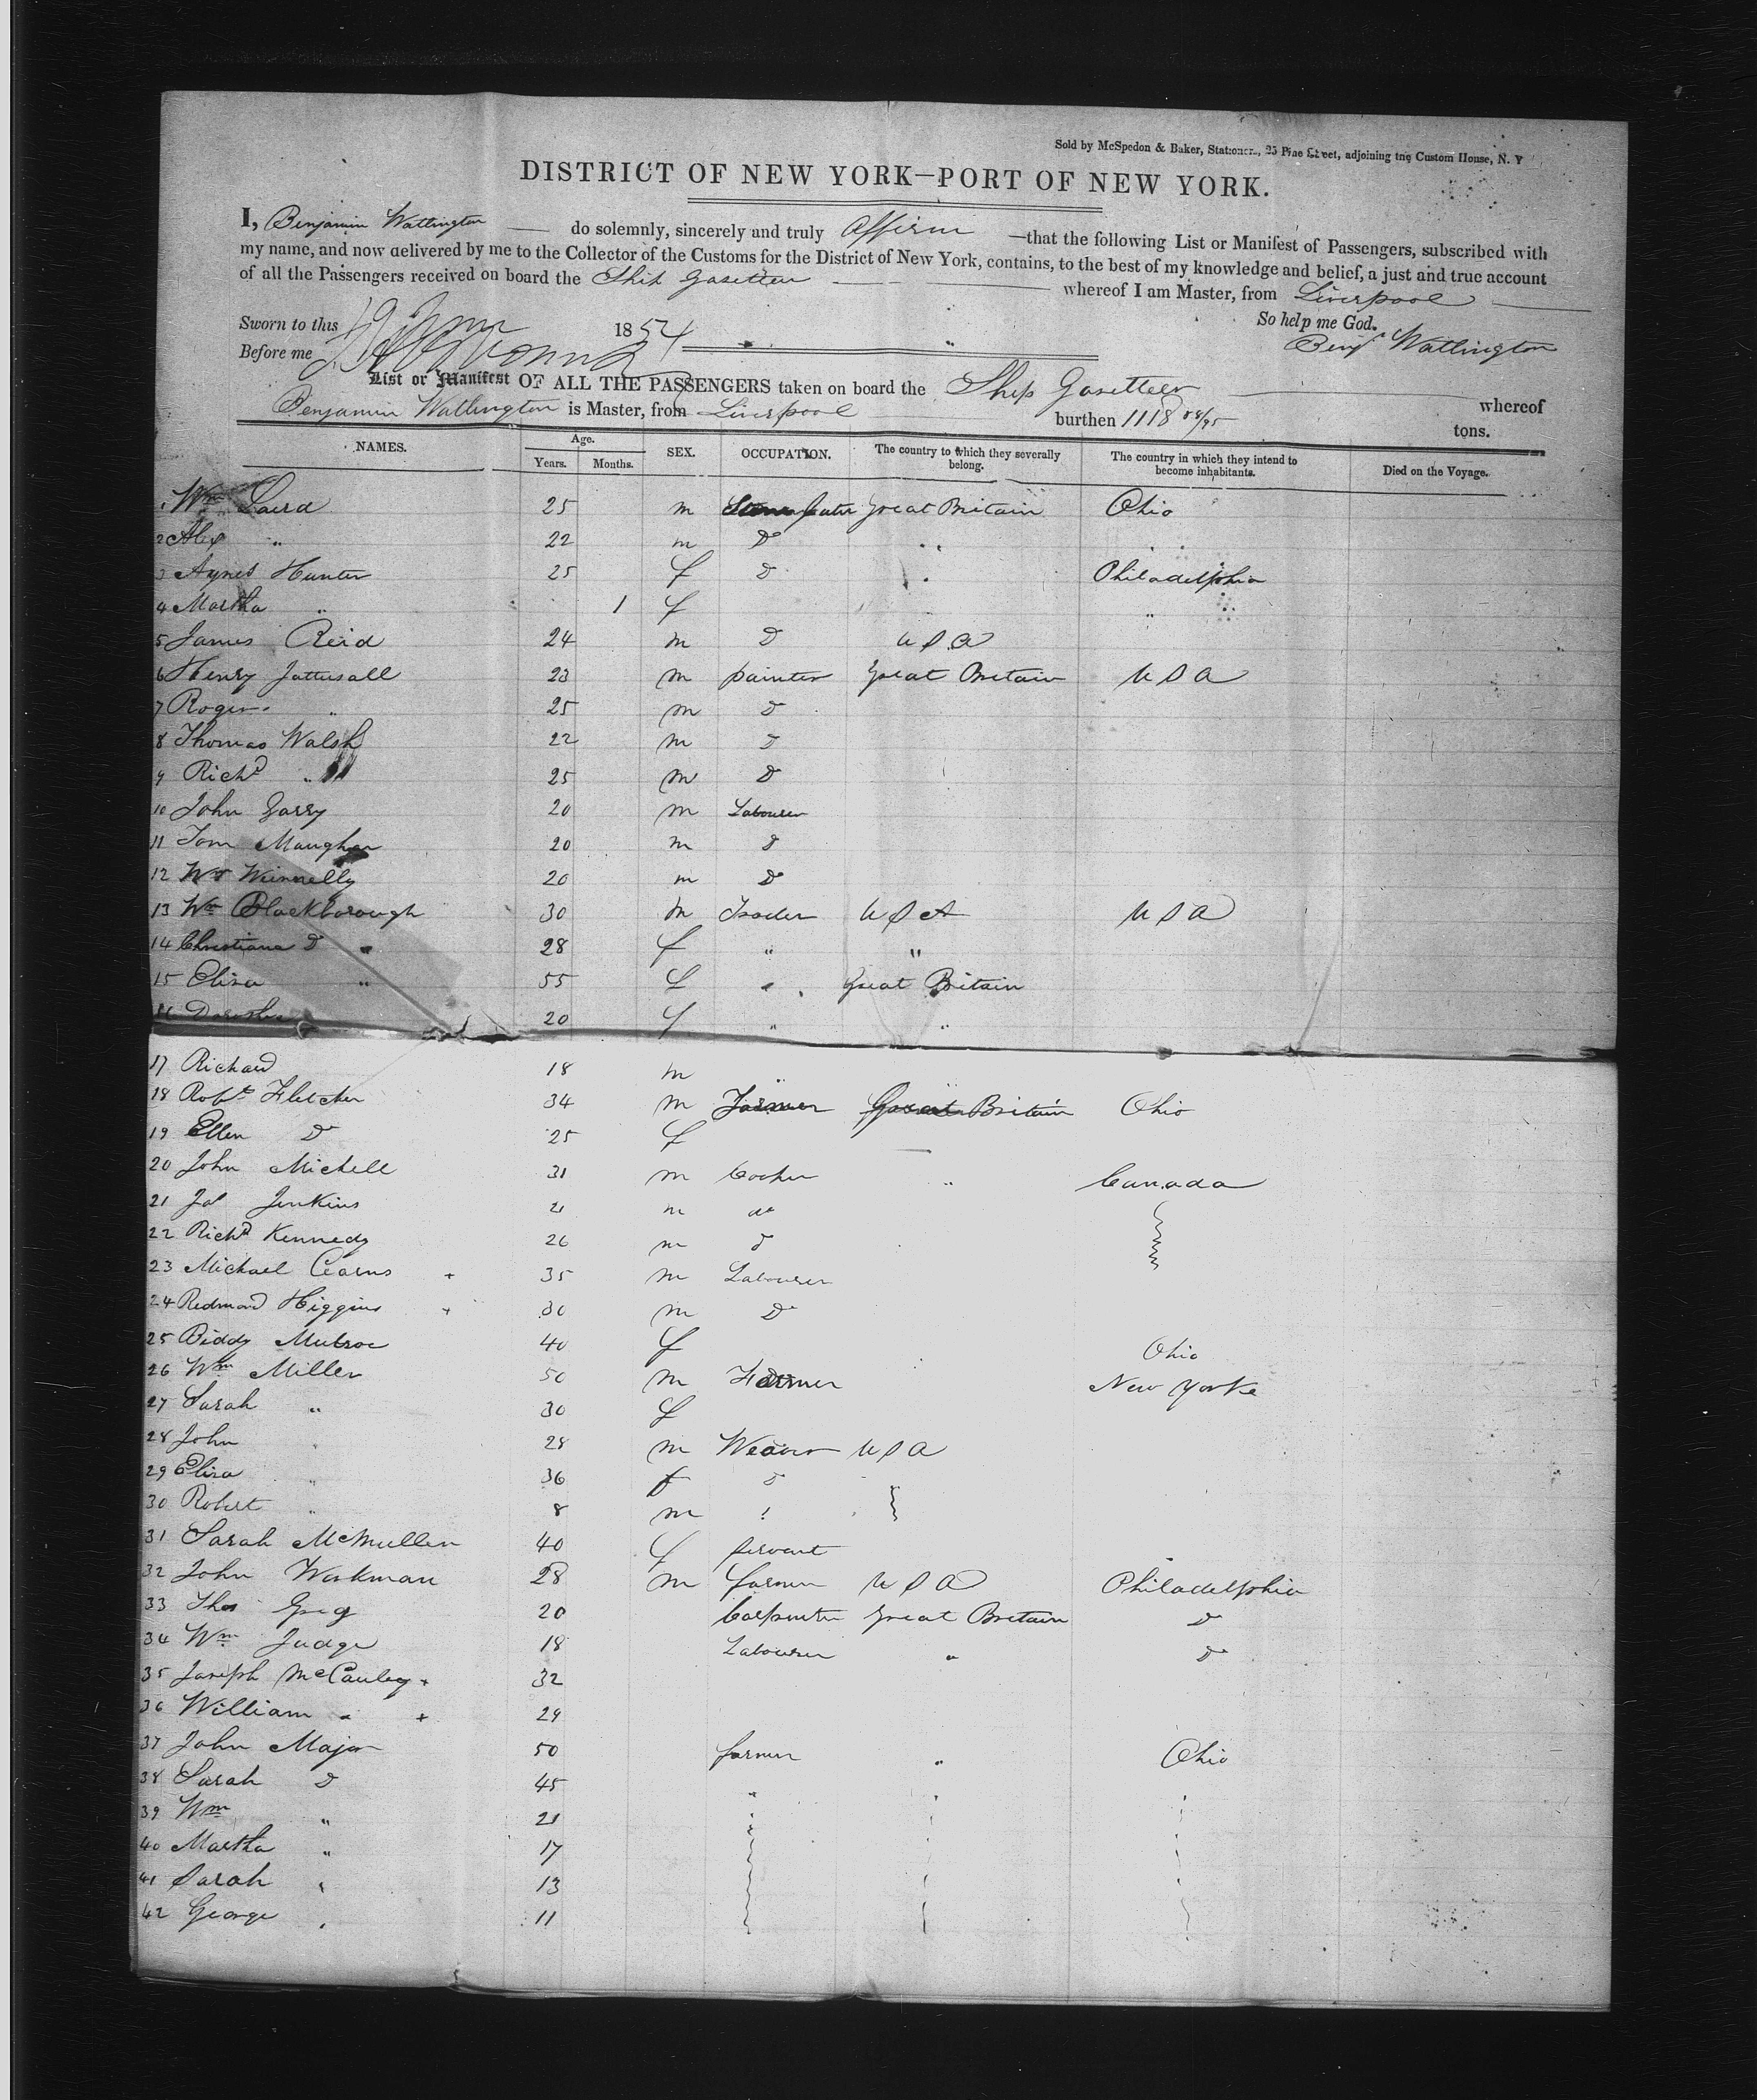 Sold by McSpedon & Baker, Stationers, 25 Pine Street, adjoining the Custom House, N. Y
DISTRICT OF NEW YORK—PORT OF NEW YORK.
I, Benjamin Watlington do solemnly, sincerely and truly affirm —that the following List or Manifest of Passengers, subscribed with
my name, and now delivered by me to the Collector of the Customs for the District of New York, contains, to the best of my knowledge and belief, a just and true account
of all the Passengers received on board the Ship Gasetteer whereof I am Master, from Liverpool
Sworn to this 1854 So help me God.
Before me Benjn Watlington
List or Manifest OF ALL THE PASSENGERS taken on board the Ship Gasetteer whereof
Benjamin Watlington is Master, from Liverpool burthen 1118 tons.
NAMES. Age. Years. Months. SEX. OCCUPATION. The country to which they severally belong. The country in which they intend to become inhabitants. Died on the Voyage.
1 Wm Laird 25 m Stone Cutter Great Britain Ohio
2 Alex " 22 m Do "
3 Agnes Hunter 25 f Do " Philadelphia
4 Martha " 1 f " "
5 James Reid 24 m Do U S A
6 Henry Tattersall 23 m painter Great Britain U S A
7 Roger " 25 m Do
8 Thomas Walsh 22 m Do
9 Richd " 25 m Do
10 John Garry 20 m Labourer
11 Tom Maugher 20 m Do
12 Wm Winnelly 20 m Do
13 Wm Blackborough 30 m Trader U S A U S A
14 Christiana D " 28 f " "
15 Eliza " 55 f " Great Britain
16 20 f " "
17 Richard 18 m
18 Robt Fletcher 34 m Farmer Great Britain Ohio
19 Ellen Do 25 f
20 John Michell 31 m " Canada
21 Jas Jenkins 21 m do
22 Richd Kennedy 26 m Do
23 Michael Cearns + 35 m Labourer
24 Redmond Higgins + 30 m Do
25 Biddy Mulroe 40 f Ohio
26 Wm Miller 50 m Farmer New Yorke
27 Sarah " 30 f
28 John " 28 m Weaver U S A
29 Eliza " 36 f Do
30 Robert " 8 m
31 Sarah McMullen 40 f servant
32 John Workman 28 m farmer U S A Philadelphia
33 Thos Greg 20 Carpenter Great Britain Do
34 Wm Judge 18 Labourer " Do
35 Joseph McCauley + 32
36 William " + 29
37 John Major 50 farmer " Ohio
38 Sarah Do 45 "
39 Wm " 21
40 Martha " 17
41 Sarah " 13
42 George " 11